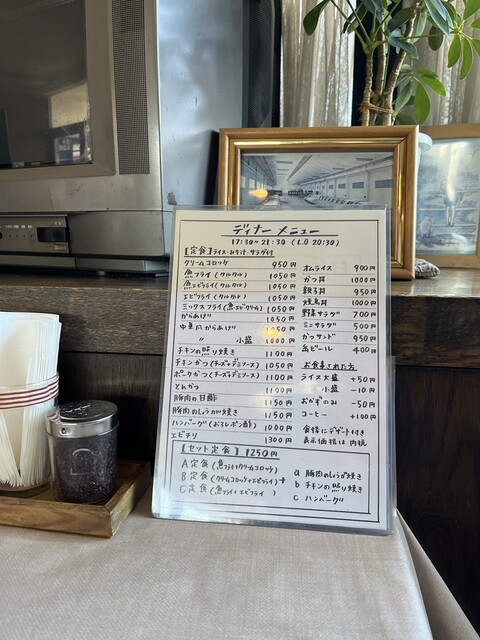 ディナー メニュー
17:30~21:30 (L.O 20:30)
【定食】ライス・みそ汁・サラダ付
クリームコロッケ 950円
魚フライ(タルタル) 1050
魚・エビフライ(タルタル) 1050
エビフライ(タルタル) 1050
ミックスフライ(魚・エビ・クリカ) 1050
からあげ 1050
中華風からあげ 1050
〃 小盛 1000
チキンの照り焼き 1100
チキンかつ(チーズorデミソース) 1150
ポークかつ(チーズorデミソース) 1100
とんかつ 1100
豚肉の甘酢 1150
豚肉のしょうが焼き 1150
ハンバーグ(おろしポン酢) 1000
エビチリ 1300円
オムライス 900円
かつ丼 1000円
親子丼 950円
焼鳥丼 1000円
野菜サラダ 700円
ミニサラダ 500円
かつサンド 950円
缶ビール 400円
お食事された方
ライス大盛 +50円
小盛 -10円
おかずのみ -50円
コーヒー +100円
食後にデザート付き
表示価格は内税
【セット定食】1250円
A定食(魚フライ+クリームコロッケ)
B定食(クリームコロッケ+エビフライ)+
C定食(魚フライ+エビフライ)
a 豚肉のしょうが焼き
b チキンの照り焼き
c ハンバーグ